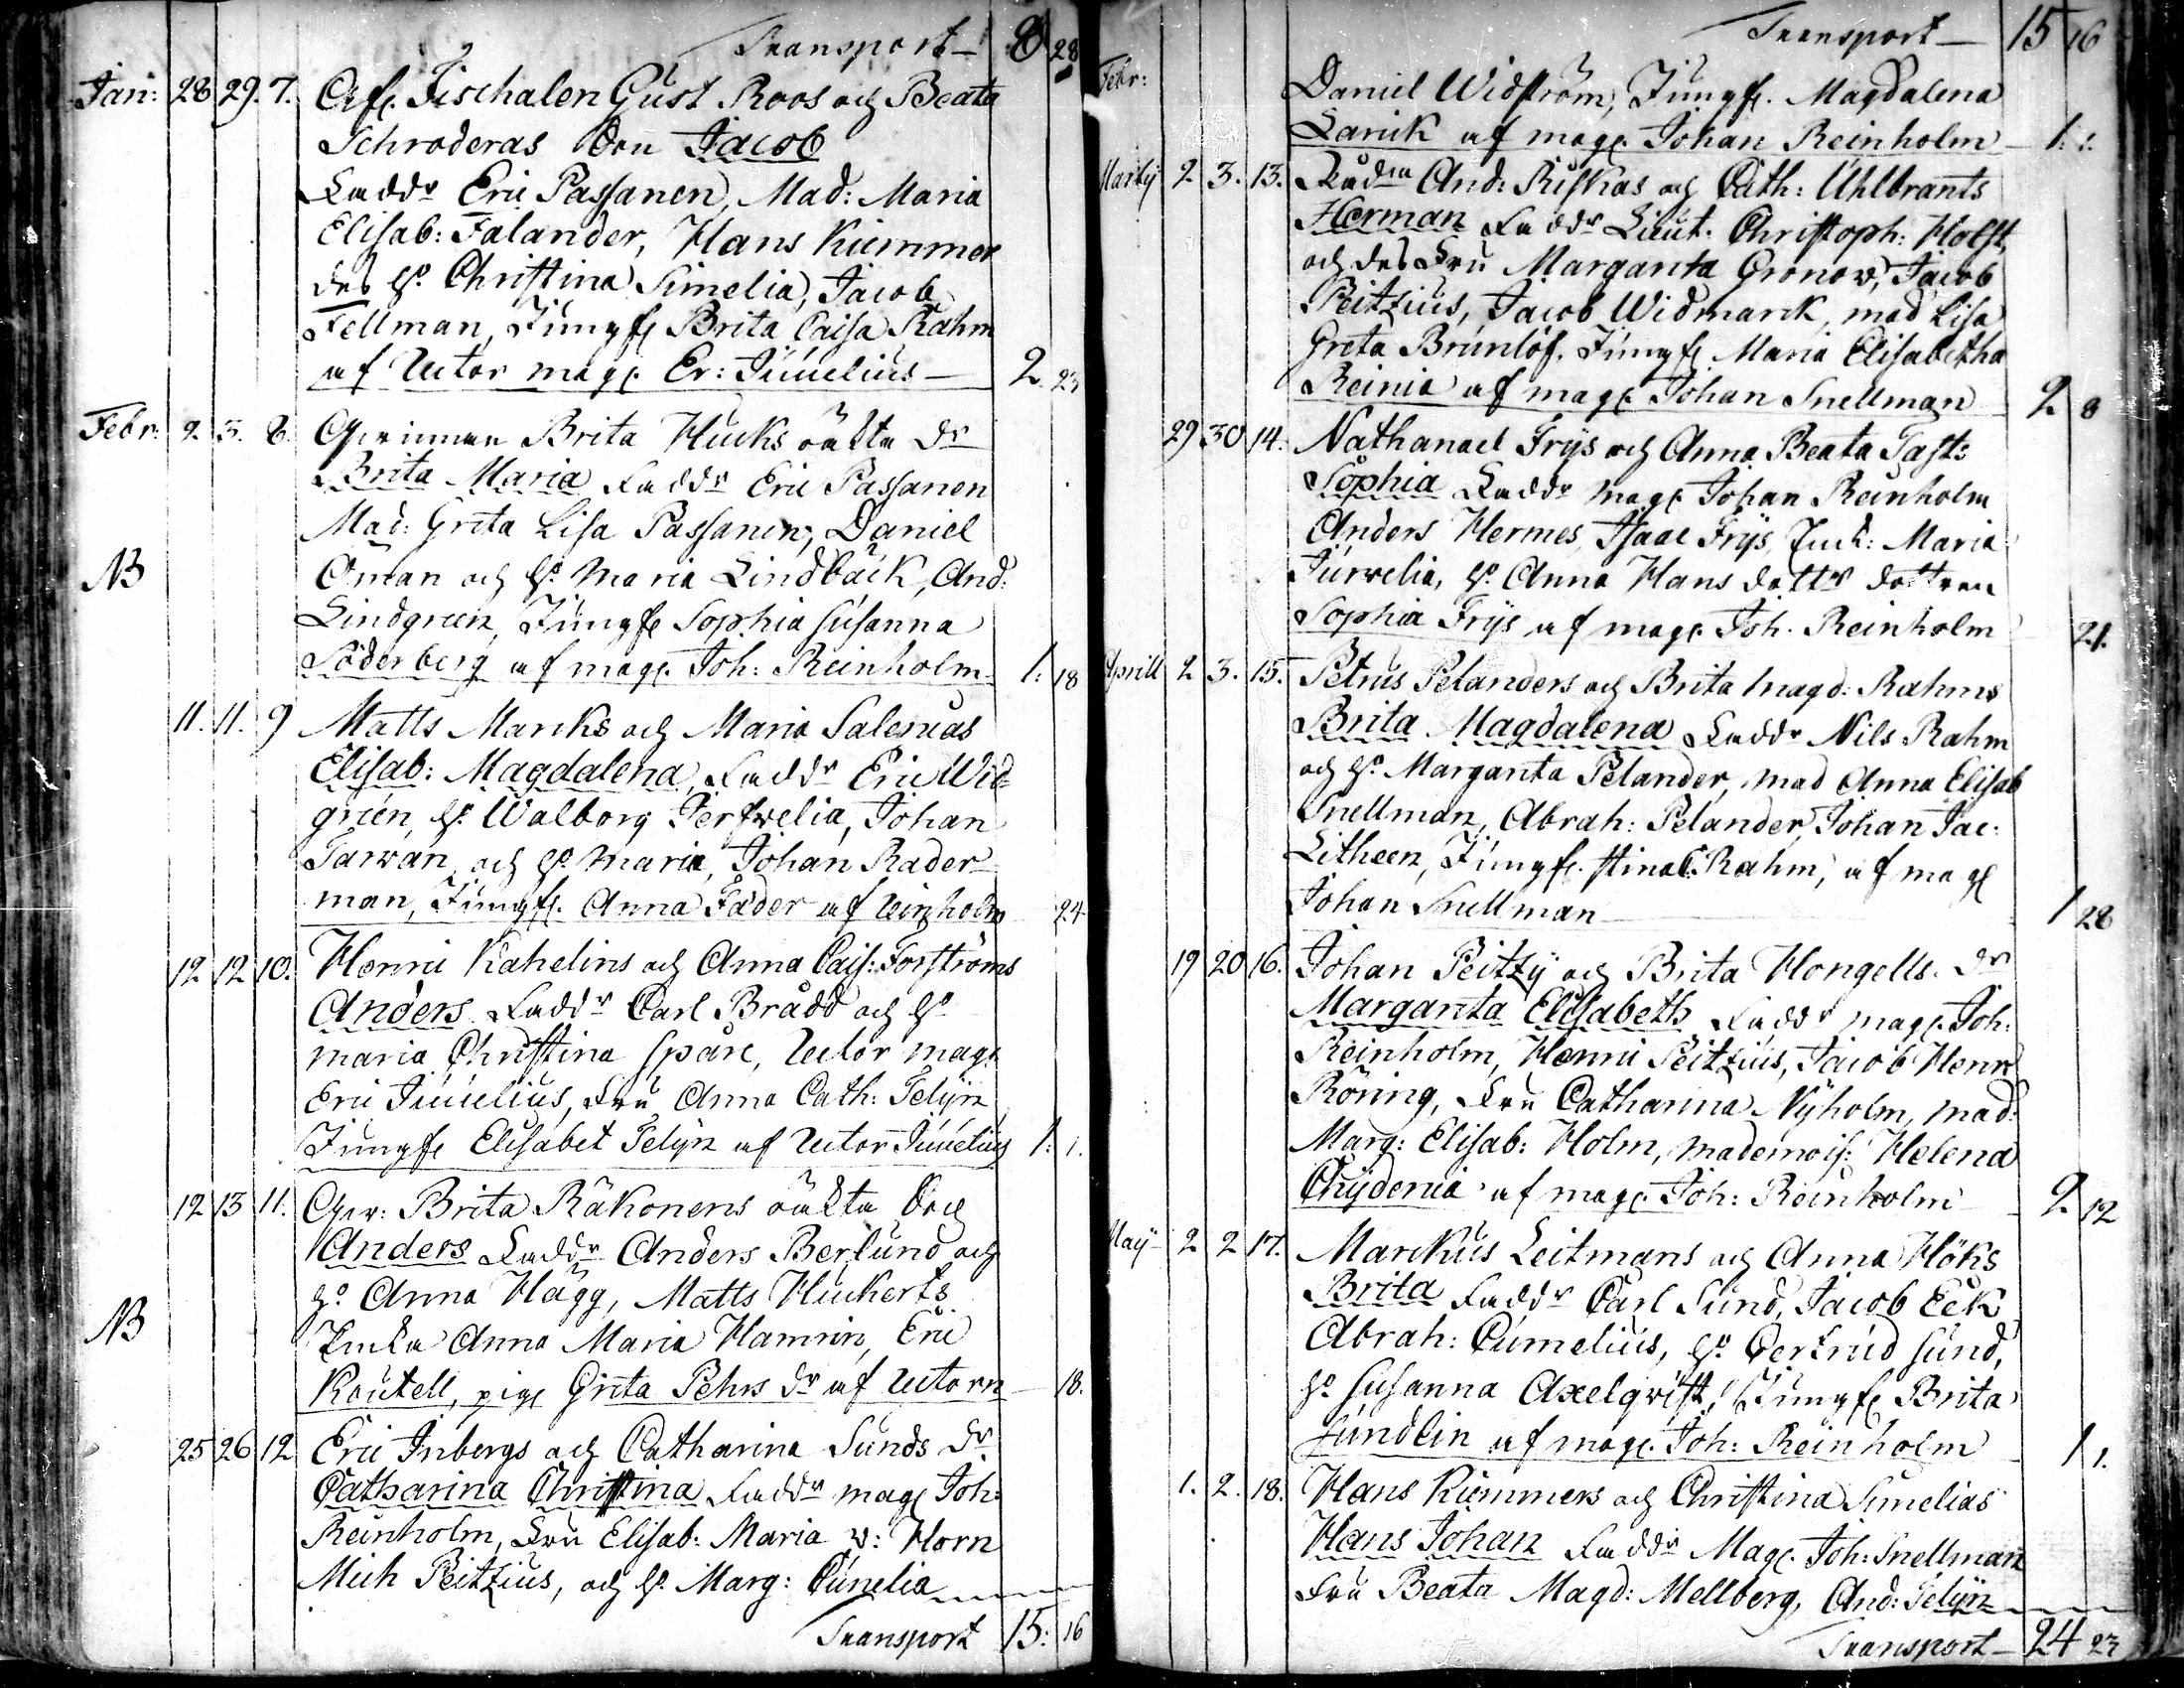 Transport — 8 28
Jan: 28 29. 7. Cifl. Fischalen Gust Roos och Beata
Schroderas Son Jacob
Faddr Eric Passanen, Mad: Maria
Elisab: Falander, Hans Kummer
des h: Christina Simelia, Jacob
Fellman, Jungfr Brita Caisa Rahm
af Rector mag. Er: Juuelius — 2. 23
Febr: 2. 3. 8. Qwinnan Brita Hucks oäkta Dr
Brita Maria Faddr Eric Passanen
Mad: Greta Lisa Passanen, Daniel
NB Öman och h: Maria Lindbäck, And:
Lindgreen, Jungfr Sophia Susanna
Söderberg af mag. Joh: Reinholm 1: 18
11. 11. 9 Matts Marcks och Maria Salenias
Elisab: Magdalena, Faddr Eric Wid=
green, h: Walborg Jerfwelia, Johan
Tarwan, och h: Maria, Johan Rader
man, Jungfr. Anna Fader af Reinholm 24
12 12 10. Henric Kahelins och Anna Cais: Forströms
Anders Faddr Carl Brådd och h:
Maria Christina Spare, Rector mag:
Eric Juuelius, Fru Anna Cath: Telijn
Jungfr Elisabet Telijn af Rector Juuelius 1: 1.
12 13 11. Qwr: Brita Räkonens oäkta Son
Anders Faddr Anders Berlund och
h: Anna Hägg, Matts Huckerts
NB Enka Anna Maria Hamrin, Eric
Koutell, pig. Greta Pehrs dr af Rectorn — 18.
25 26 12 Eric Inbergs och Catharina Sunds Dr
Catharina Christina Faddr mag. Joh:
Reinholm, Fru Elisab: Maria v: Horn
Mich Peitzius, och h: Marg: Cunelia
Transport 15: 16
Transport — 15 16
Febr: Daniel Widström, Jungfr. Magdalena
Larick af mag. Johan Reinholm — 1: 1.
Martij 2 3. 13. Rådm And: Riskas och Cath: Uhlbrants
Herman Faddr Lieut. Christoph: Holst,
och des Fru Margareta Gronow, Jacob
Peitzius, Jacob Widmarck, mad Lisa
Greta Brunlöf. Jungfr. Maria Elisabetha
Reinia af mag. Johan Snellman 2 8
29 30 14. Nathanael Frijs och Anna Beata Tasts
Sophia Faddr mag. Johan Reinholm
Anders Hermes, Isaac Frijs, Enck: Maria
Jürwelia, h: Anna Hans dotter dottren
Sophia Frijs af mag. Joh. Reinholm 21.
Aprill 2 3. 15. Petrus Pelanders och Brita Magd: Rahms
Brita Magdalena Faddr Nils Rahm
och h: Margareta Pelander, mad Anna Elisab
Snellman, Abrah: Pelander, Johan Jac:
Litheen, Jungfr. Stina C: Rahm, af mag
Johan Snellman 1 28
19 20 16. Johan Peitzij och Brita Hongells Dr
Margareta Elisabeth Faddr mag. Joh:
Reinholm, Henric Peitzius, Jacob Henr
Röring, Fru Catharina Nyholm, mad:
Marg: Elisab: Holm, mademois: Helena
Chydenia af mag. Joh: Reinholm 2. 12
Maij 2 2 17. Marckus Leitmans och Anna Höks
Brita Faddr Carl Sund, Jacob Eek
Abrah: Cumelius, h: Gertrud Sund,
h: Susanna Axelqvist, Jungfr Brita
Sundlin af mag. Joh: Reinholm 1 1.
1. 2. 18. Hans Kummers och Christina Simelias
Hans Johan Faddr Mag. Joh: Snellman
Fru Beata Magd: Mellberg, And: Telijn
Transport — 24 23